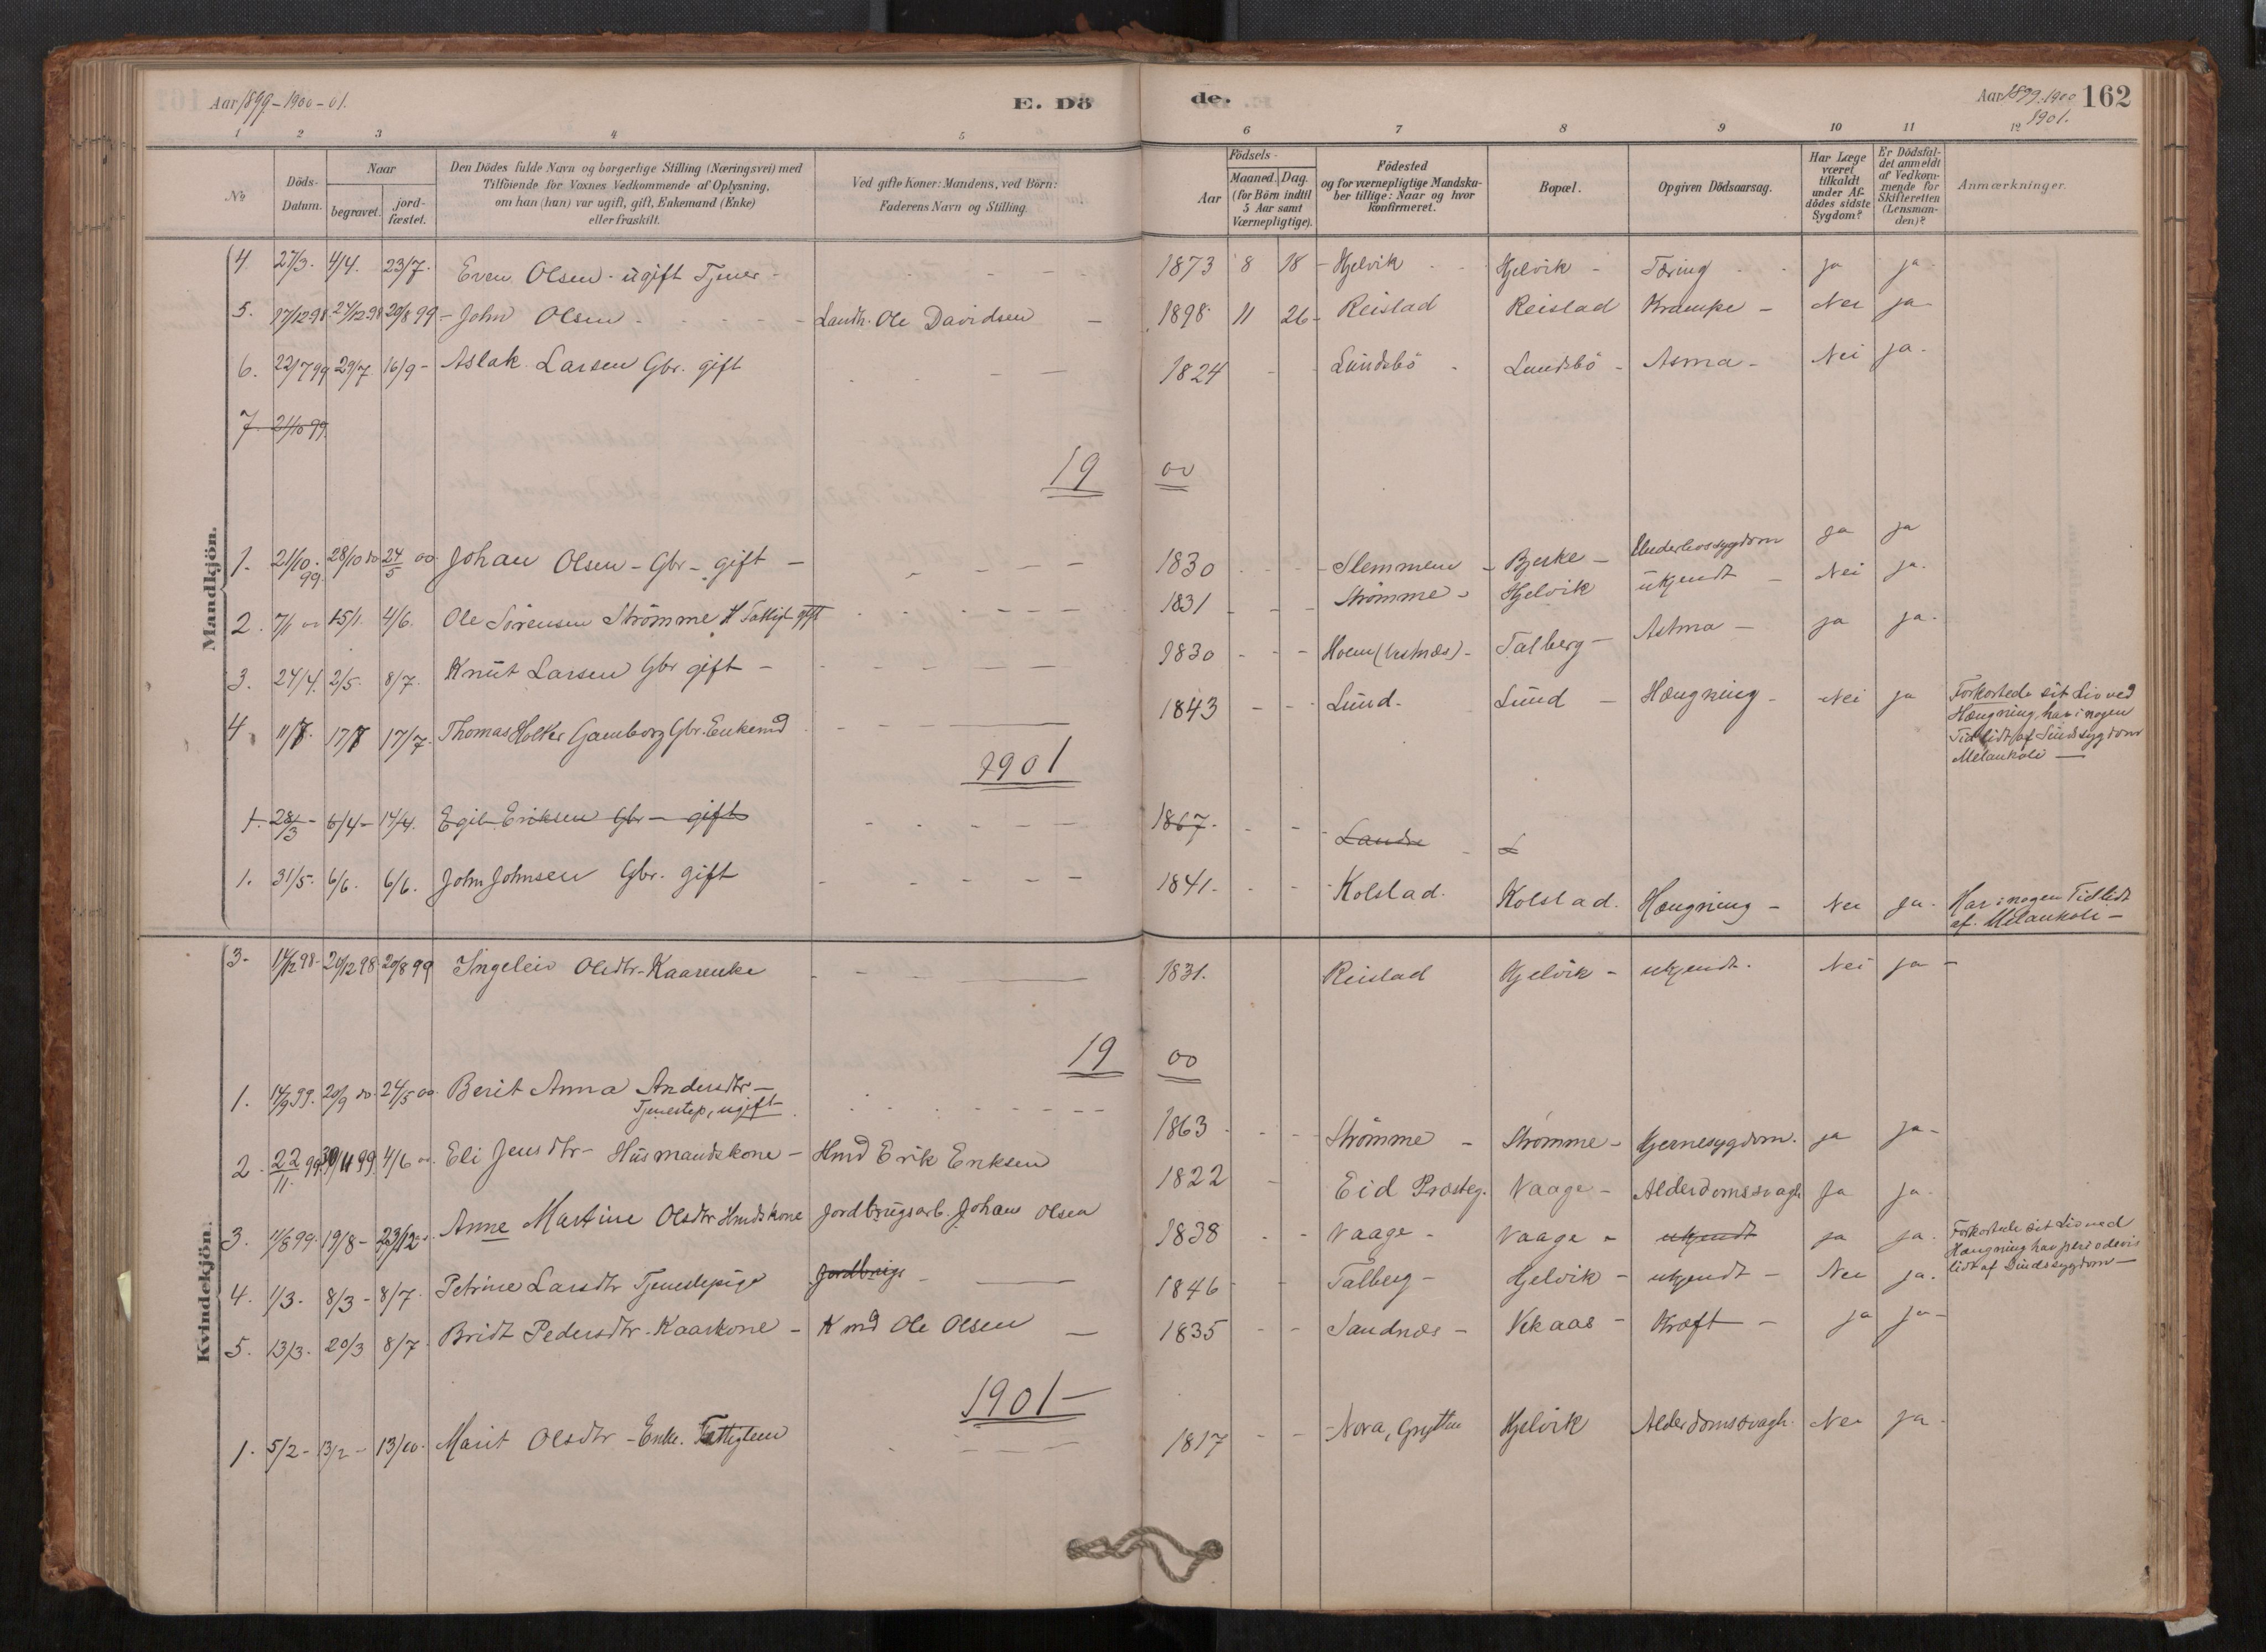 Aar 1899-1900-01.
E. Dö
de.
Aar 1899-1900
1901.
162
1 2 3 4 5 6 7 8 9 10 11 12
No
Döds-Datum.
Naar
begravet.
jord-fæstet.
Den Dödes fulde Navn og borgerlige Stilling (Næringsvei) med
Tilföiende for Voxnes Vedkommende af Oplysning,
om han (hun) var ugift, gift, Enkemand (Enke)
eller fraskilt.
Ved gifte Koner: Mandens, ved Börn:
Faderens Navn og Stilling.
Födsels-
Aar
Maaned. Dag.
(for Börn indtil
5 Aar samt
Værnepligtige).
Födested
og for værnepligtige Mandska-
ber tillige: Naar og hvor
konfirmeret.
Bopæl.
Opgiven Dödsaarsag.
Har Læge
været
tilkaldt
under Af-
dödes sidste
Sygdom?
Er Dödsfal-
det anmeldt
af Vedkom-
mende for
Skifteretten
(Lensman-
den)?
Anmærkninger.
Mandkjön.
4. 27/3. 4/4. 23/7. Even Olsen - ugift Tjener - 1873 8 18 Hjelvik - Hjelvik - Tæring - ja ja
5. 17/12 98. 27/12 98 20/8 99 - John Olsen - Landh. Ole Davidsen - 1898 11 26 - Reistad Reistad Krampe - Nei ja
6. 22/7 99 29/7 16/9 - Aslak Larsen Gbr. gift 1824 - Lundsbö - Lundsbö - Asma - Nei ja -
7. 21/10 99.
1900
1. 21/10 99. 28/10 do 24/5 00 Johan Olsen - Gbr - gift - 1830 - Slemmem - Bjerke - Underlivssygdom ja ja
2. 7/1 00 15/1. 4/6. Ole Sörensen Strömme H Fattigl gift 1831 - Strömme - Hjelvik ukjendt - Nei ja.
3. 24/4. 2/5. 8/7. Knut Larsen Gbr gift - 1830 - Hoem (Vestnæs) - Talberg - Astma - ja ja.
4. 11/7. 17/7 17/7. Thomas Holter Gamborg Gbr. Enkemd 1843 - Lund - Lund - Hængning - Nei ja Forkortede sit Liv ved
Hængning, har i nogen
Tid lidt af Sindssygdom
Melankoli -
1901
1. 28/3 - 6/4 - 14/4. Egil Eriksen Gbr - gift 1867. - Lande -
1. 31/5. 6/6. 6/6. John Johnsen Gbr. gift 1841. - Kolstad. Kolstad. Hængning - Nei ja. Har i nogen Tid lidt
af Melankoli -
Kvindekjön.
3. 14/12 98. 20/12 98 20/8 99 Ingeleiv Olsdtr - Kaarenke 1831. Reistad Hjelvik - ukjendt. Nei ja -
1900
1. 14/9 99. 20/9 do. 24/5 00. Berit Anna Andersdtr -
Tjenestep, ugift 1863 - Strömme - Strömme - Hjernesygdom. ja ja -
2. 22/11 99 30/11 99. 4/6 00. Eli Jensdtr - Husmandskone - Hmd Erik Eriksen 1822 - Eid Præsteg. Vaage - Alderdomssvagh ja ja
3. 11/8 99. 19/8 - 23/12. Anne Martine Olsdtr Hmdskone Jordbrugsarb. Johan Olsen 1838 - Vaage - Vaage - ukjendt ja ja. Forkortede sit Liv ved
Hængning har periodevis
lidt af Sindssygdom -
4. 1/3. 8/3 - 8/7. Petrine Larsdtr Tjenestepige Jordbrugs 1846 - Talberg - Hjelvik - ukjendt - Nei ja.
5. 13/3. 20/3 8/7. Bridt Pedersdtr - Kaarkone - K md Ole Olsen - 1835 - Sandnes - Vekaas - Kræft - ja ja -
1901 -
1. 5/2 - 13/2 - 13/10. Marit Olsdtr - Enke. Fattiglem 1817 - Nora, Grytten Hjelvik Alderdomssvagh. Nei ja